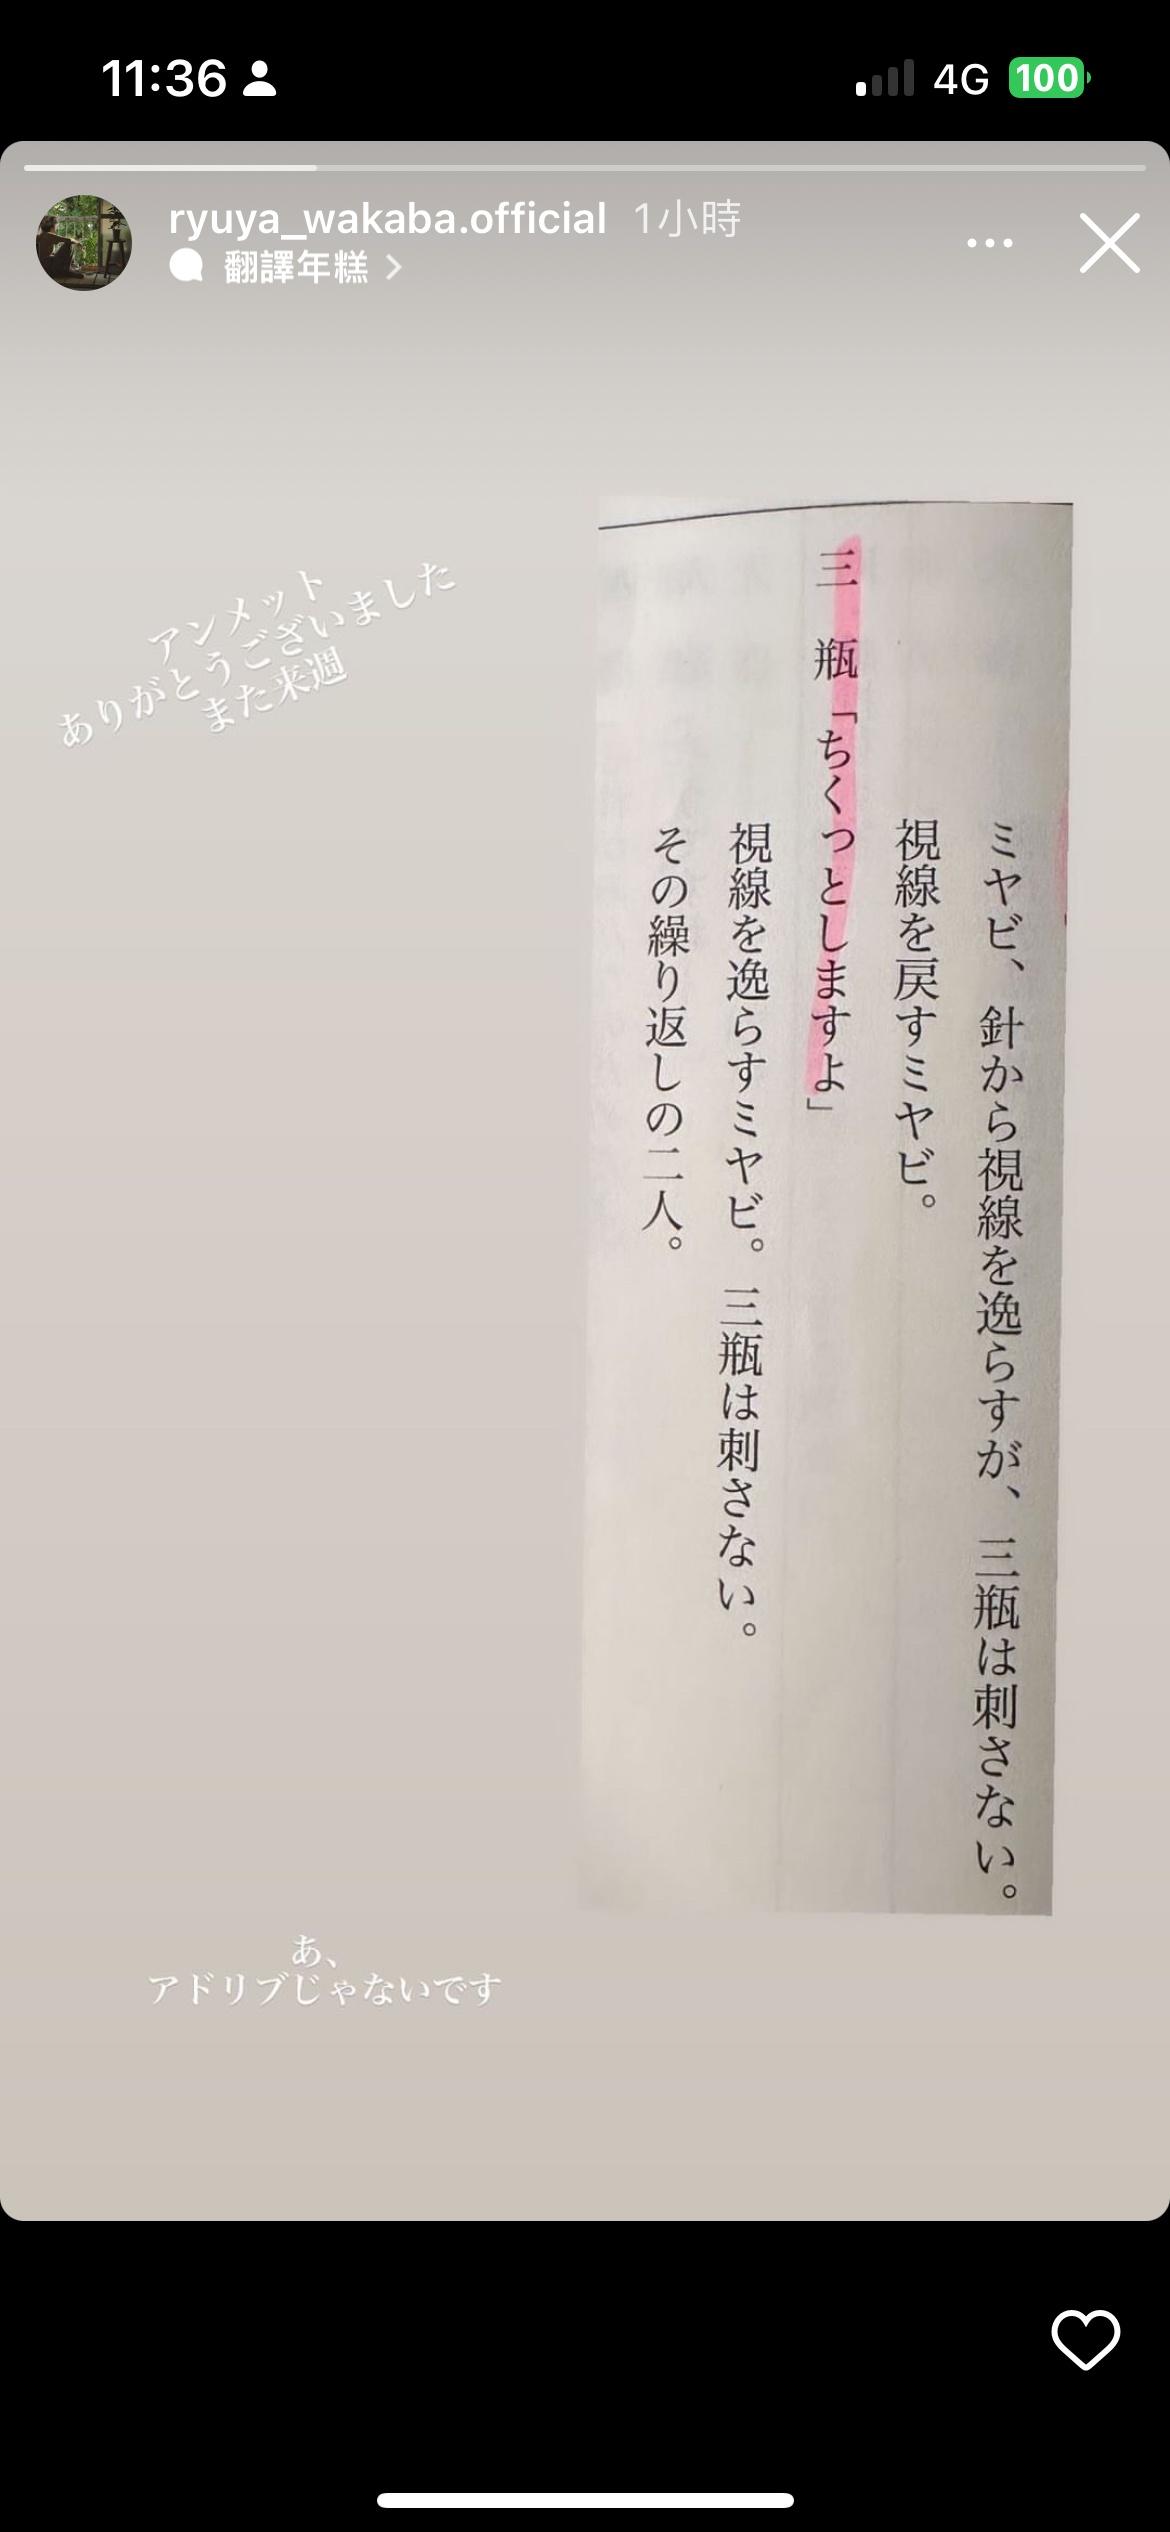 11:36
4G
100
ryuya_wakaba.official 1小時
翻譯年糕
アンメット
ありがとうございました
また来週
ミヤビ、針から視線を逸らすが、三瓶は刺さない。
視線を戻すミヤビ。
三 瓶「ちくっとしますよ」
視線を逸らすミヤビ。三瓶は刺さない。
その繰り返しの二人。
あ、
アドリブじゃないです